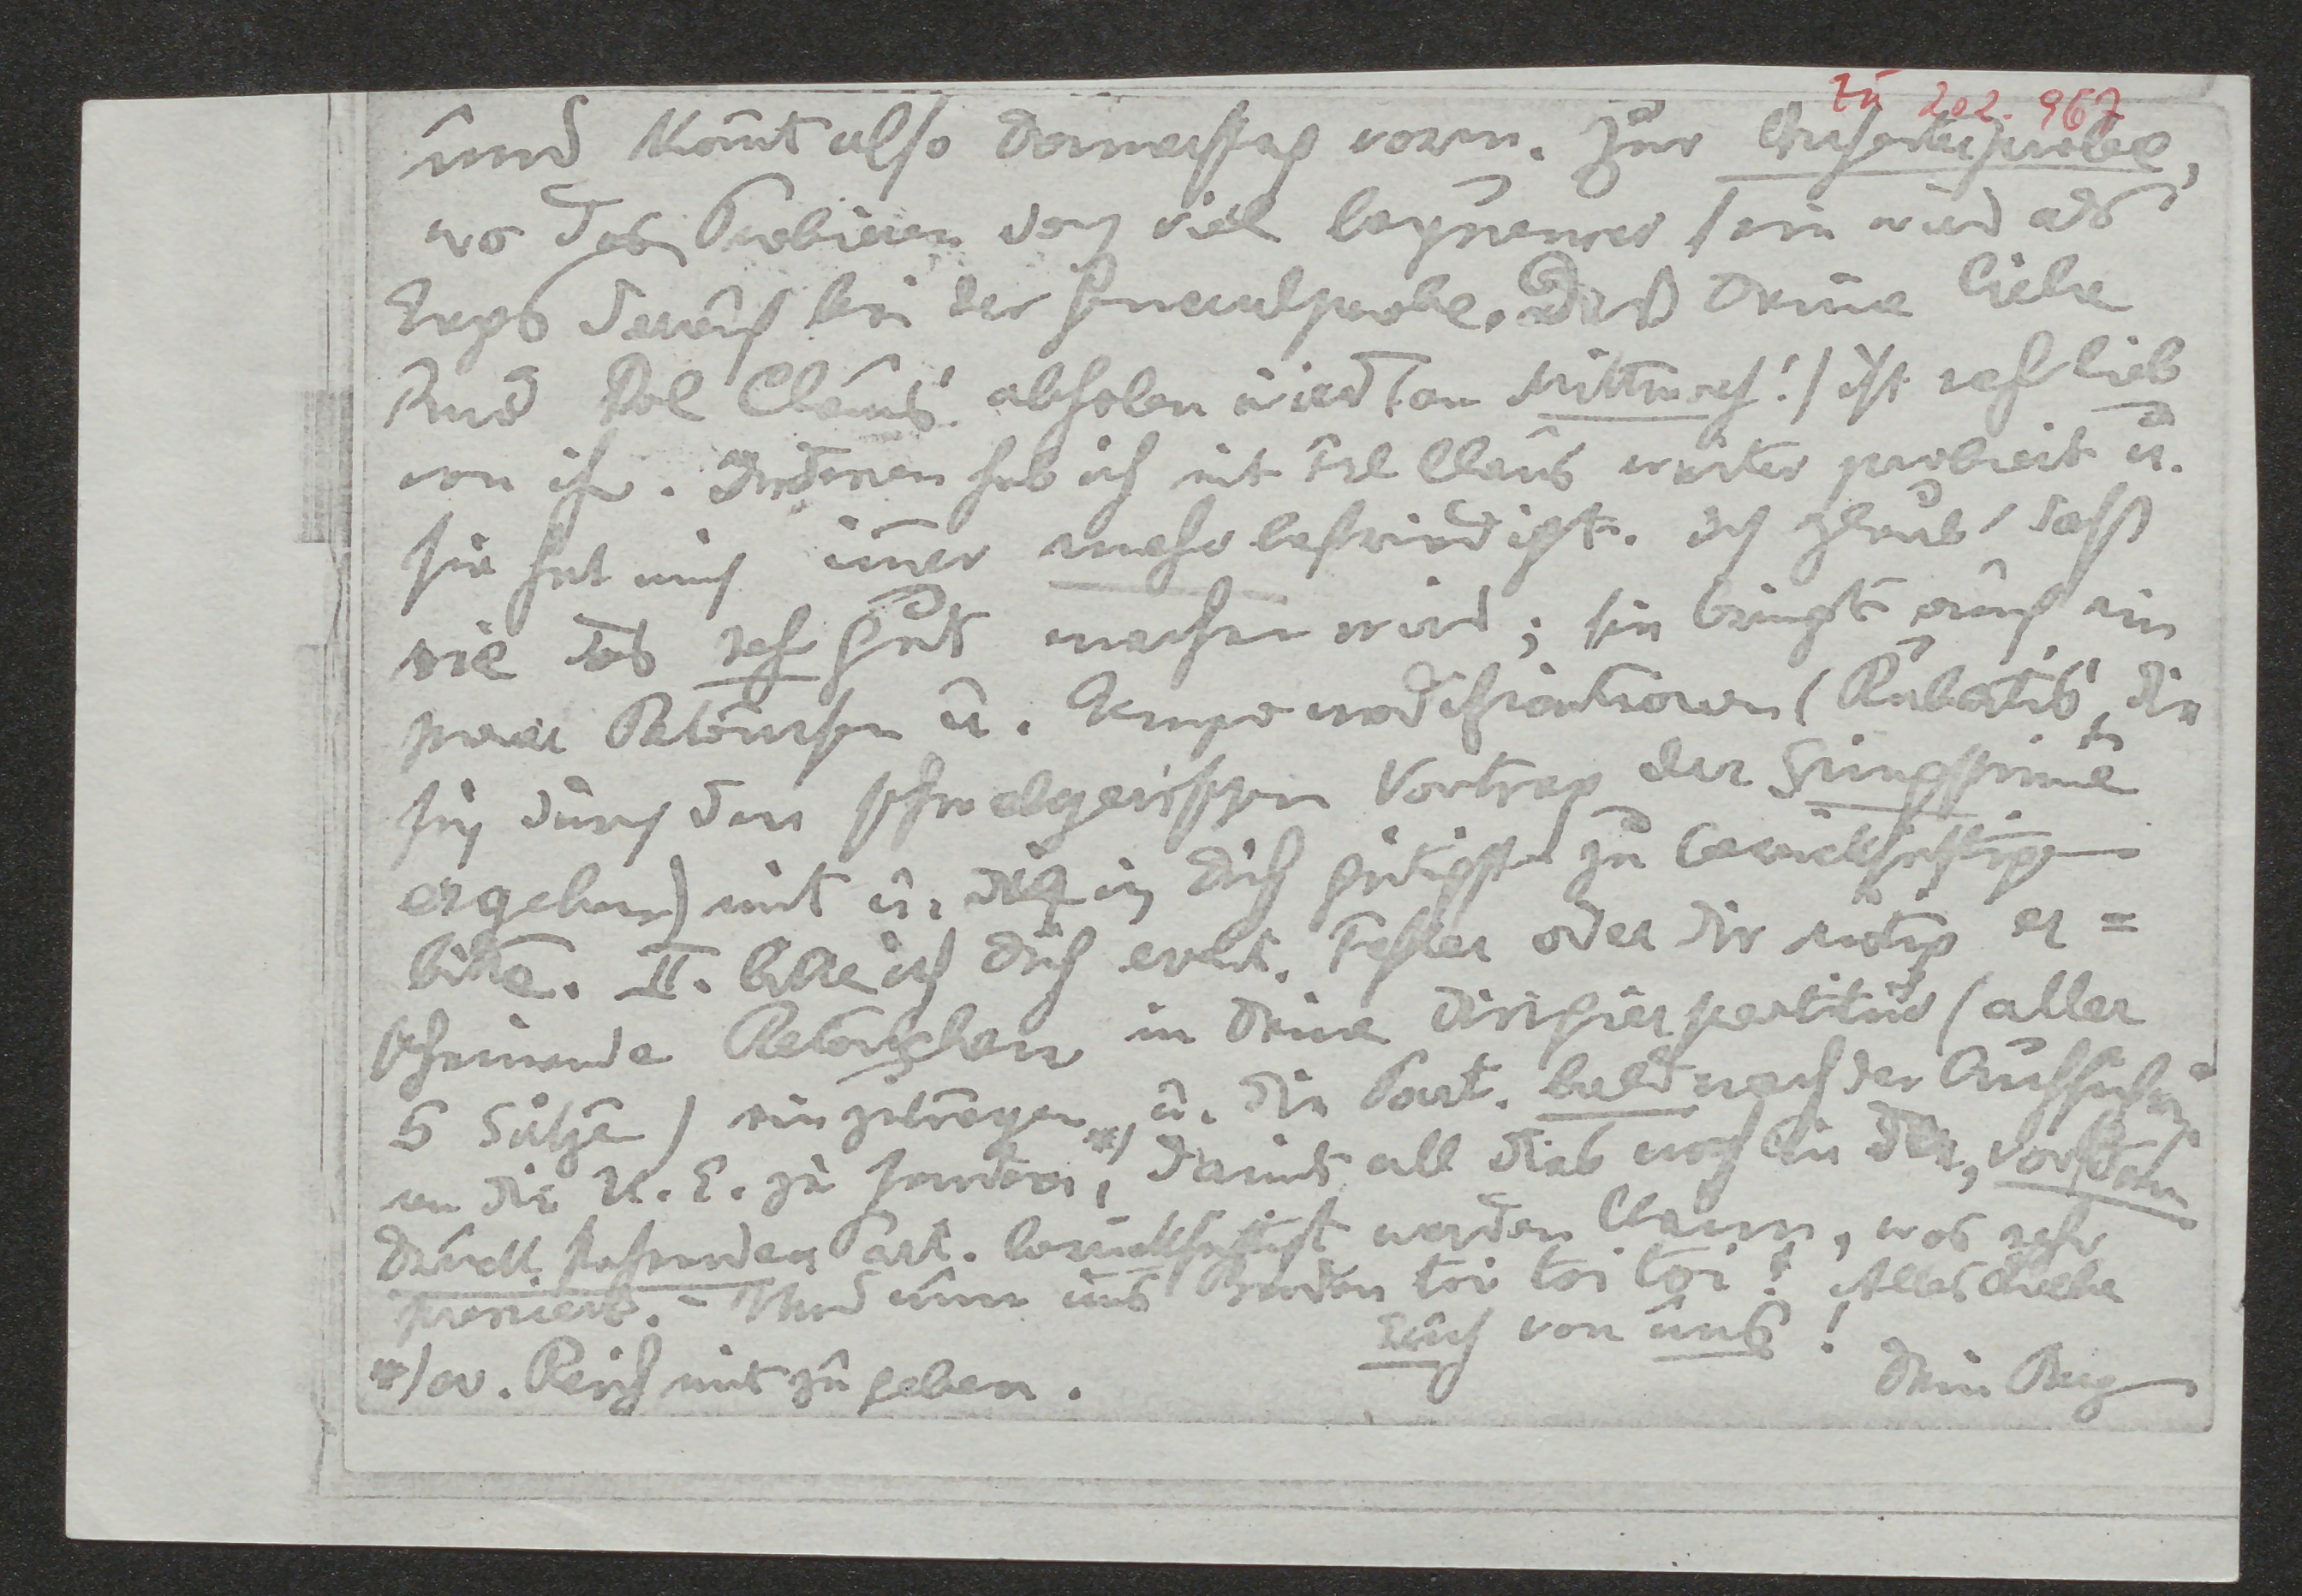 zu 202.967
und kom̄t also Donnerstag vorm. zur Orchesterprobe,
wo das Probieren doch viel bequemer sein wird als
Tags darauf bei der Generalprobe. Daß Deine liebe
Frau Frl Claus' abholen wird (am Mittwoch!) ist sehr lieb
von ihr. Indessen hab ich mit Frl Claus weiter probiert u.
sie hat mich im̄er mehr befriedigt. Ich glaub', daß
sie das sehr gut machen wird; sie bringt auch ein
paar Retouschen u. Tempomodifikationen (Rubatis', die
sich durch den Vortrag der Singstim̄e
ergeben) mit u. die ich Dich gütigst zu berücksichtigen
bitte. II. bitte ich Dich evtl. Fehler oder Dir nötig er=
scheinende Retouschen in Deine Dirigierpartitur (aller
5 Sätze) einzutragen *) u. die Part. bald nach der Aufführung
an die U. E. zu senden, damit all dies noch in der, vor dem
Druck stehenden Part. berücksichtigt werden kann, was sehr
pressiert. – Und nun uns Beiden toi toi toi! Alles Liebe
Euch von uns!
*) ev. Reich mitzugeben.
Dein Berg